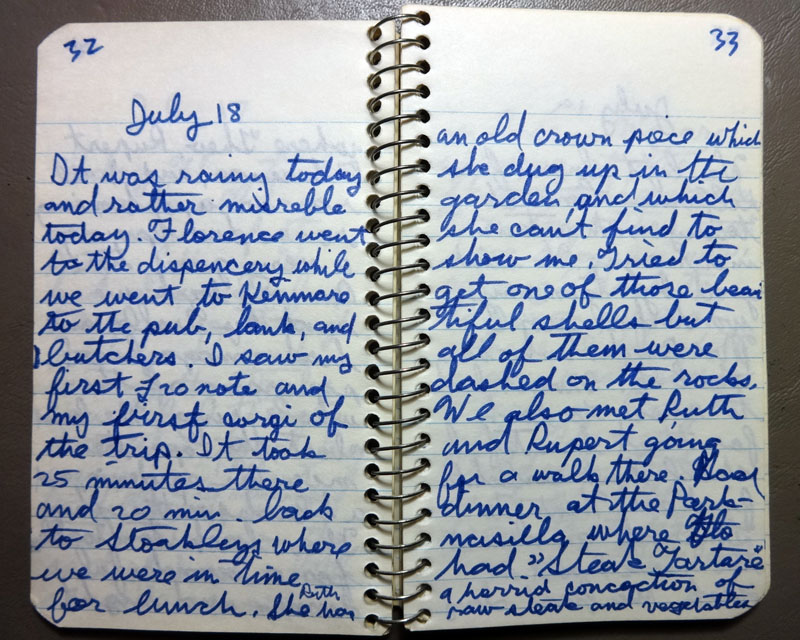 32
July 18
It was rainy today
and rather misreble
today. Florence went
to the dispencery while
we went to Kenmare
to the pub, bank, and
butchers. I saw my
first £20 note and
my first corgi of
the trip. It took
25 minutes there
and 20 min. back
to Stoakleys where
we were in time
for lunch. She has
Ruth
33
an old crown pece which
she dug up in the
garden and which
she can't find to
show me. Tried to
get one of those beau
tiful shells but
all of them were
dashed on the rocks.
We also met Ruth
and Rupert going
for a walk there.
dinner at the Park-
nasilla where Flo
had "Steak Tartare"
a horrid concoction of
raw steak and vegetables